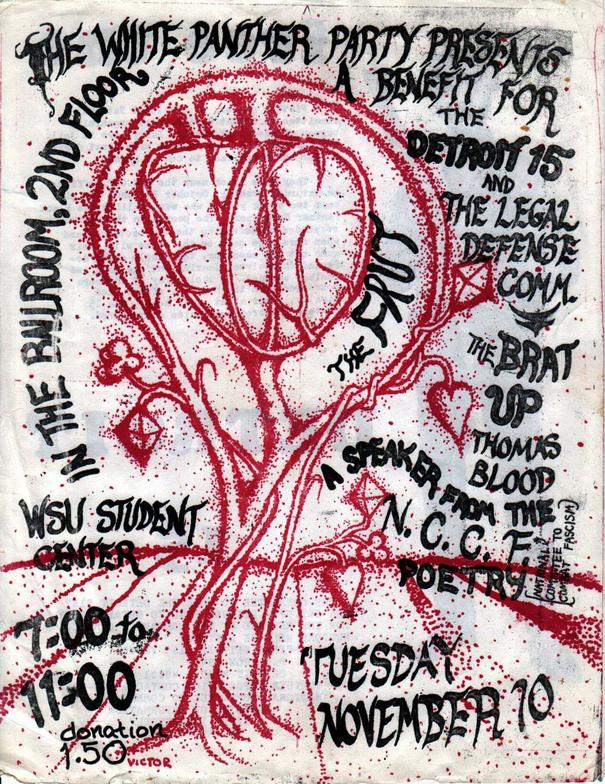 THE WHITE PANTHER PARTY PRESENTS
A BENEFIT FOR
THE
DETROIT 15
AND
THE LEGAL
DEFENSE
COMM.
IN THE BALLROOM, 2ND FLOOR
THE FRUT
THE BRAT
UP
THOMAS
BLOOD
A SPEAKER FROM THE
N. C. C. F.
[NATIONAL
COMMITTEE TO
COMBAT FASCISM]
POETRY
WSU STUDENT
CENTER
7:00 to
11:00
donation
1.50
VICTOR
TUESDAY
NOVEMBER 10